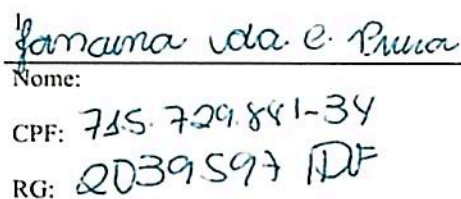 1
Janaina da C.
Nome:
CPF: 715.729.841-34
RG: 2039597 DF